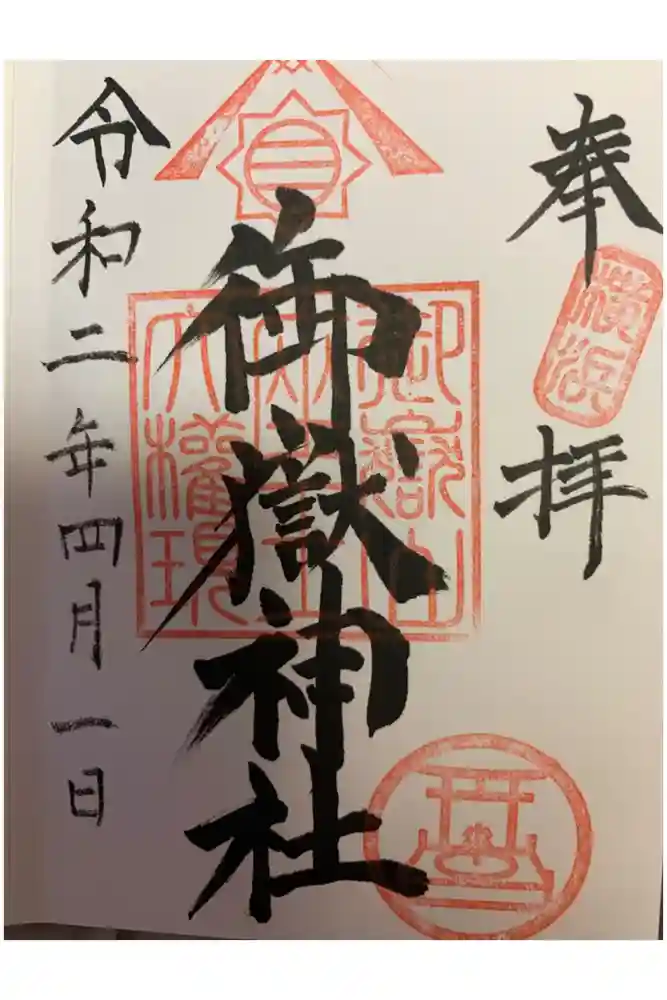 奉拝
横浜
御嶽山
大權現
御嶽神社
令和二年四月一日